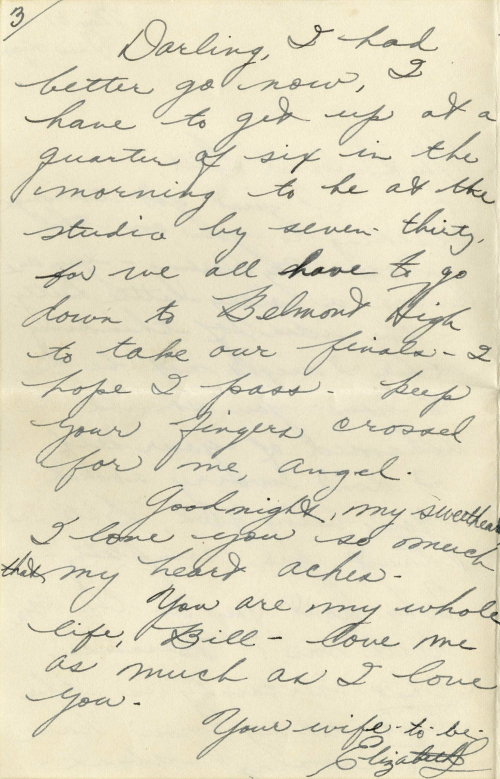 3
Darling, I had
better go now, I
have to get up at a
quarter of six in the
morning to be at the
studio by seven-thirty,
for we all have to go
down to Belmont High
to take our finals - I
hope I pass - keep
your fingers crossed
for me, angel.
Goodnight, my sweetheart
I love you so much
that my heart aches -
You are my whole
life, Bill - love me
as much as I love
you.
Your wife-to-be -
Elizabeth